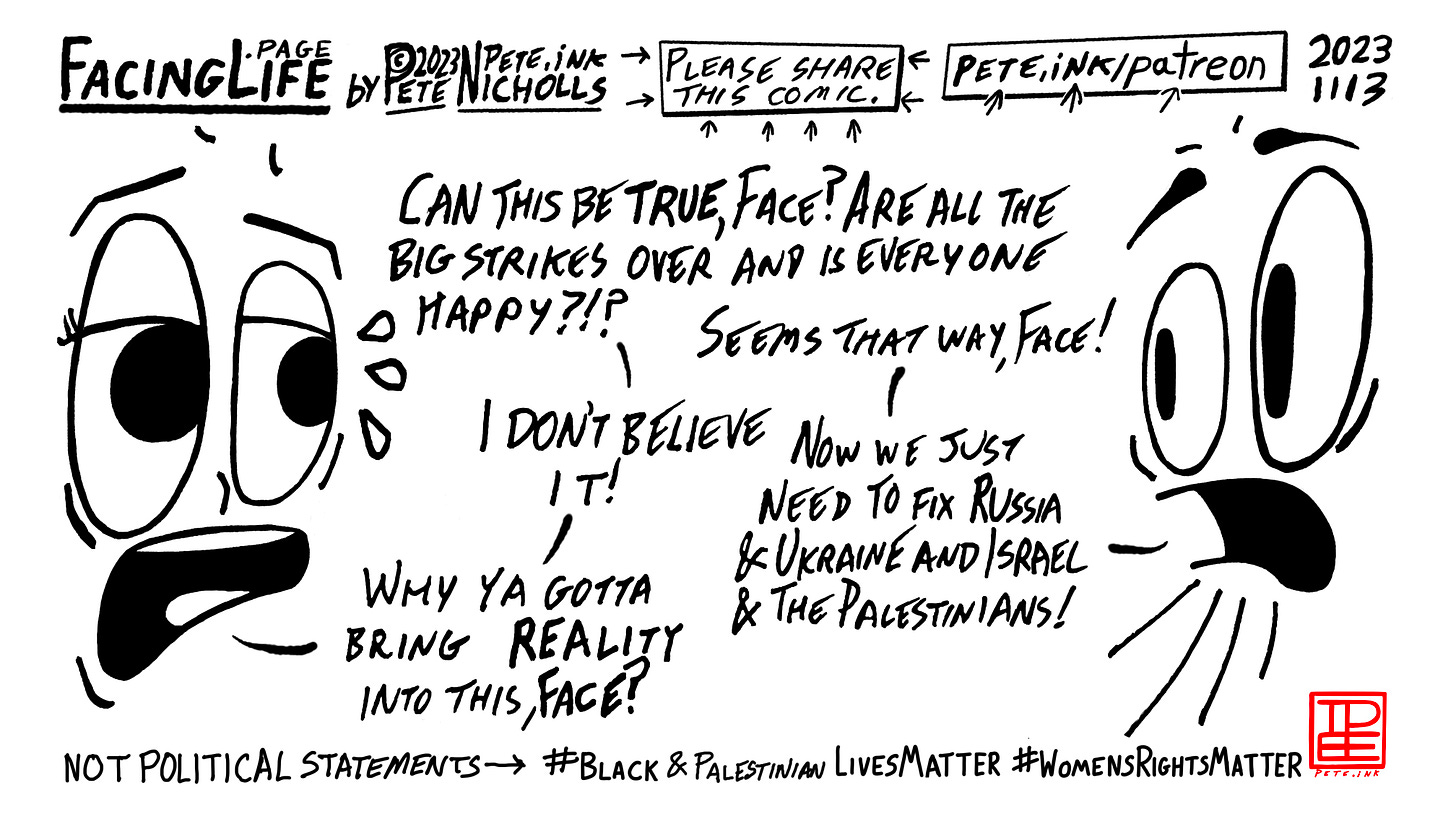 FACINGLIFE.PAGE
by ©2023 PETE.iNK
PETE NICHOLLS
PLEASE SHARE
THIS COMIC.
PETE.iNK/patreon
2023
1113
CAN THIS BE TRUE, FACE? ARE ALL THE
BIG STRIKES OVER AND IS EVERYONE
HAPPY?!?
SEEMS THAT WAY, FACE!
I DON'T BELIEVE
IT!
NOW WE JUST
NEED TO FIX RUSSIA
& UKRAINE AND ISRAEL
& THE PALESTINIANS!
WHY YA GOTTA
BRING REALITY
INTO THIS, FACE?
NOT POLITICAL STATEMENTS→ #BLACK & PALESTINIAN LIVESMATTER #WOMENSRIGHTSMATTER
PETE.iNK